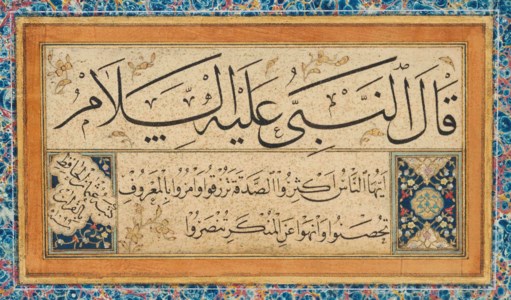 قَالَ النَّبِيُّ عَلَيْهِ السَّلَامُ
اَيُّهَا النَّاسُ اَكْثِرُوا الصَّدَقَةَ تُرْزَقُوا وَامُرُوا بِالْمَعْرُوفِ
تُحْصَنُوا وَانْهَوْا عَنِ الْمُنْكَرِ تُنْصَرُوا